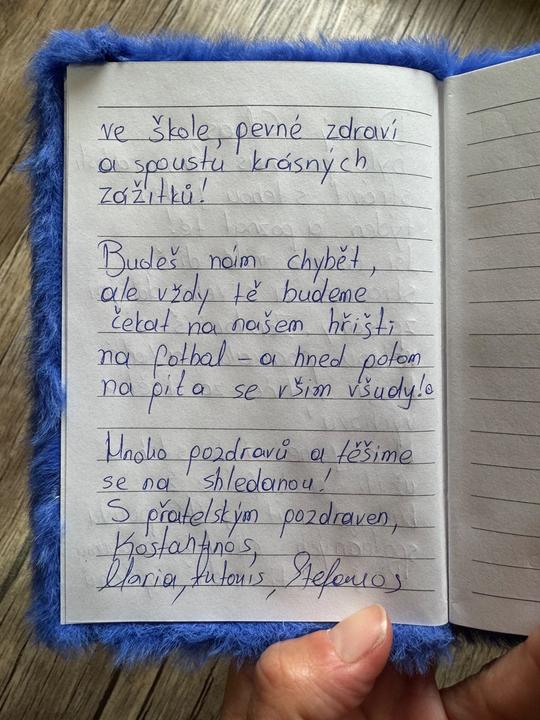 ve škole, pevné zdraví
a spoustu krásných
zážitků!
Budeš nám chybět,
ale vždy tě budeme
čekat na našem hřišti
na fotbal – a hned potom
na pita se vším všudy!
Mnoho pozdravů a těšíme
se na shledanou!
S přatelským pozdraven,
Kostantinos,
Maria, Antonis, Stefanos